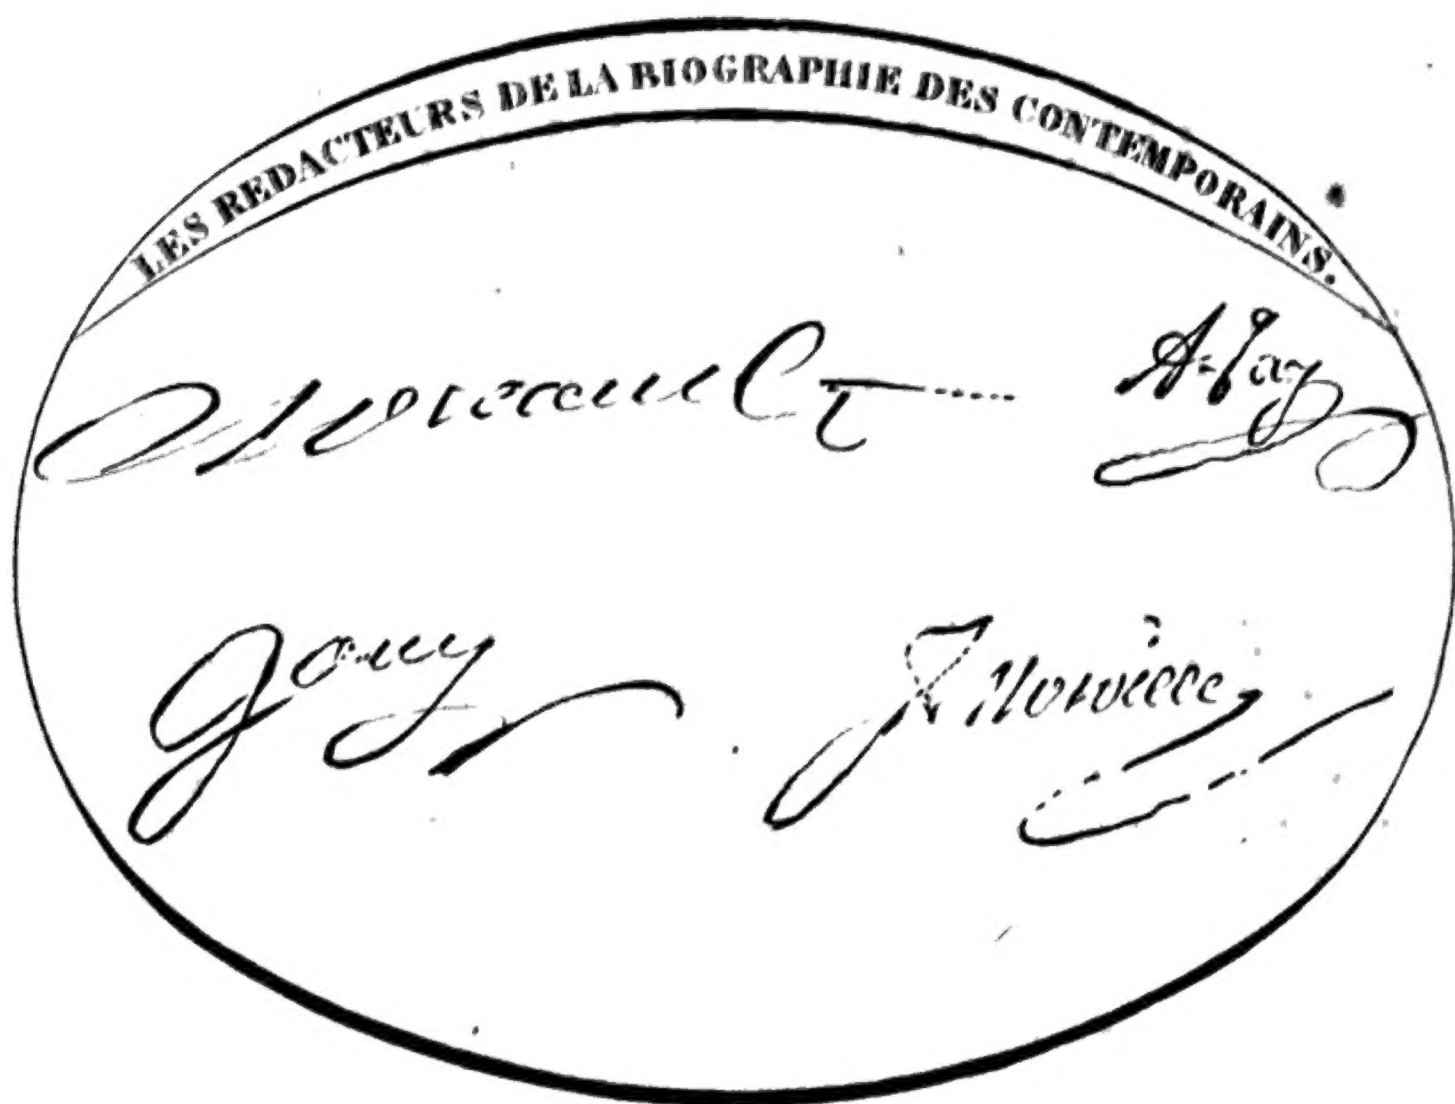 LES REDACTEURS DE LA BIOGRAPHIE DES CONTEMPORAINS.
A. Jay
Jouy
J Norvins